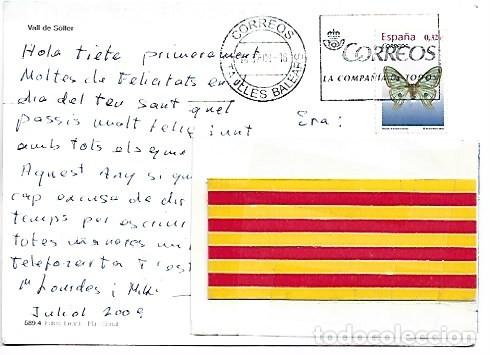 Vall de Sóller
Hola tiete primerament
Moltes de Felicitats en
dia del teu sant que l
passis molt feliç junt
amb tots els que
Aquest Any si que
cap excusa de
temps per escriure
totes maneres un
M. Lourdes i
Juliol 2009
689-4
CORREOS
ILLES BALEARS
CORREOS
LA COMPAÑIA DE TODOS
España
0,32
CORREOS
Era:
todocoleccion